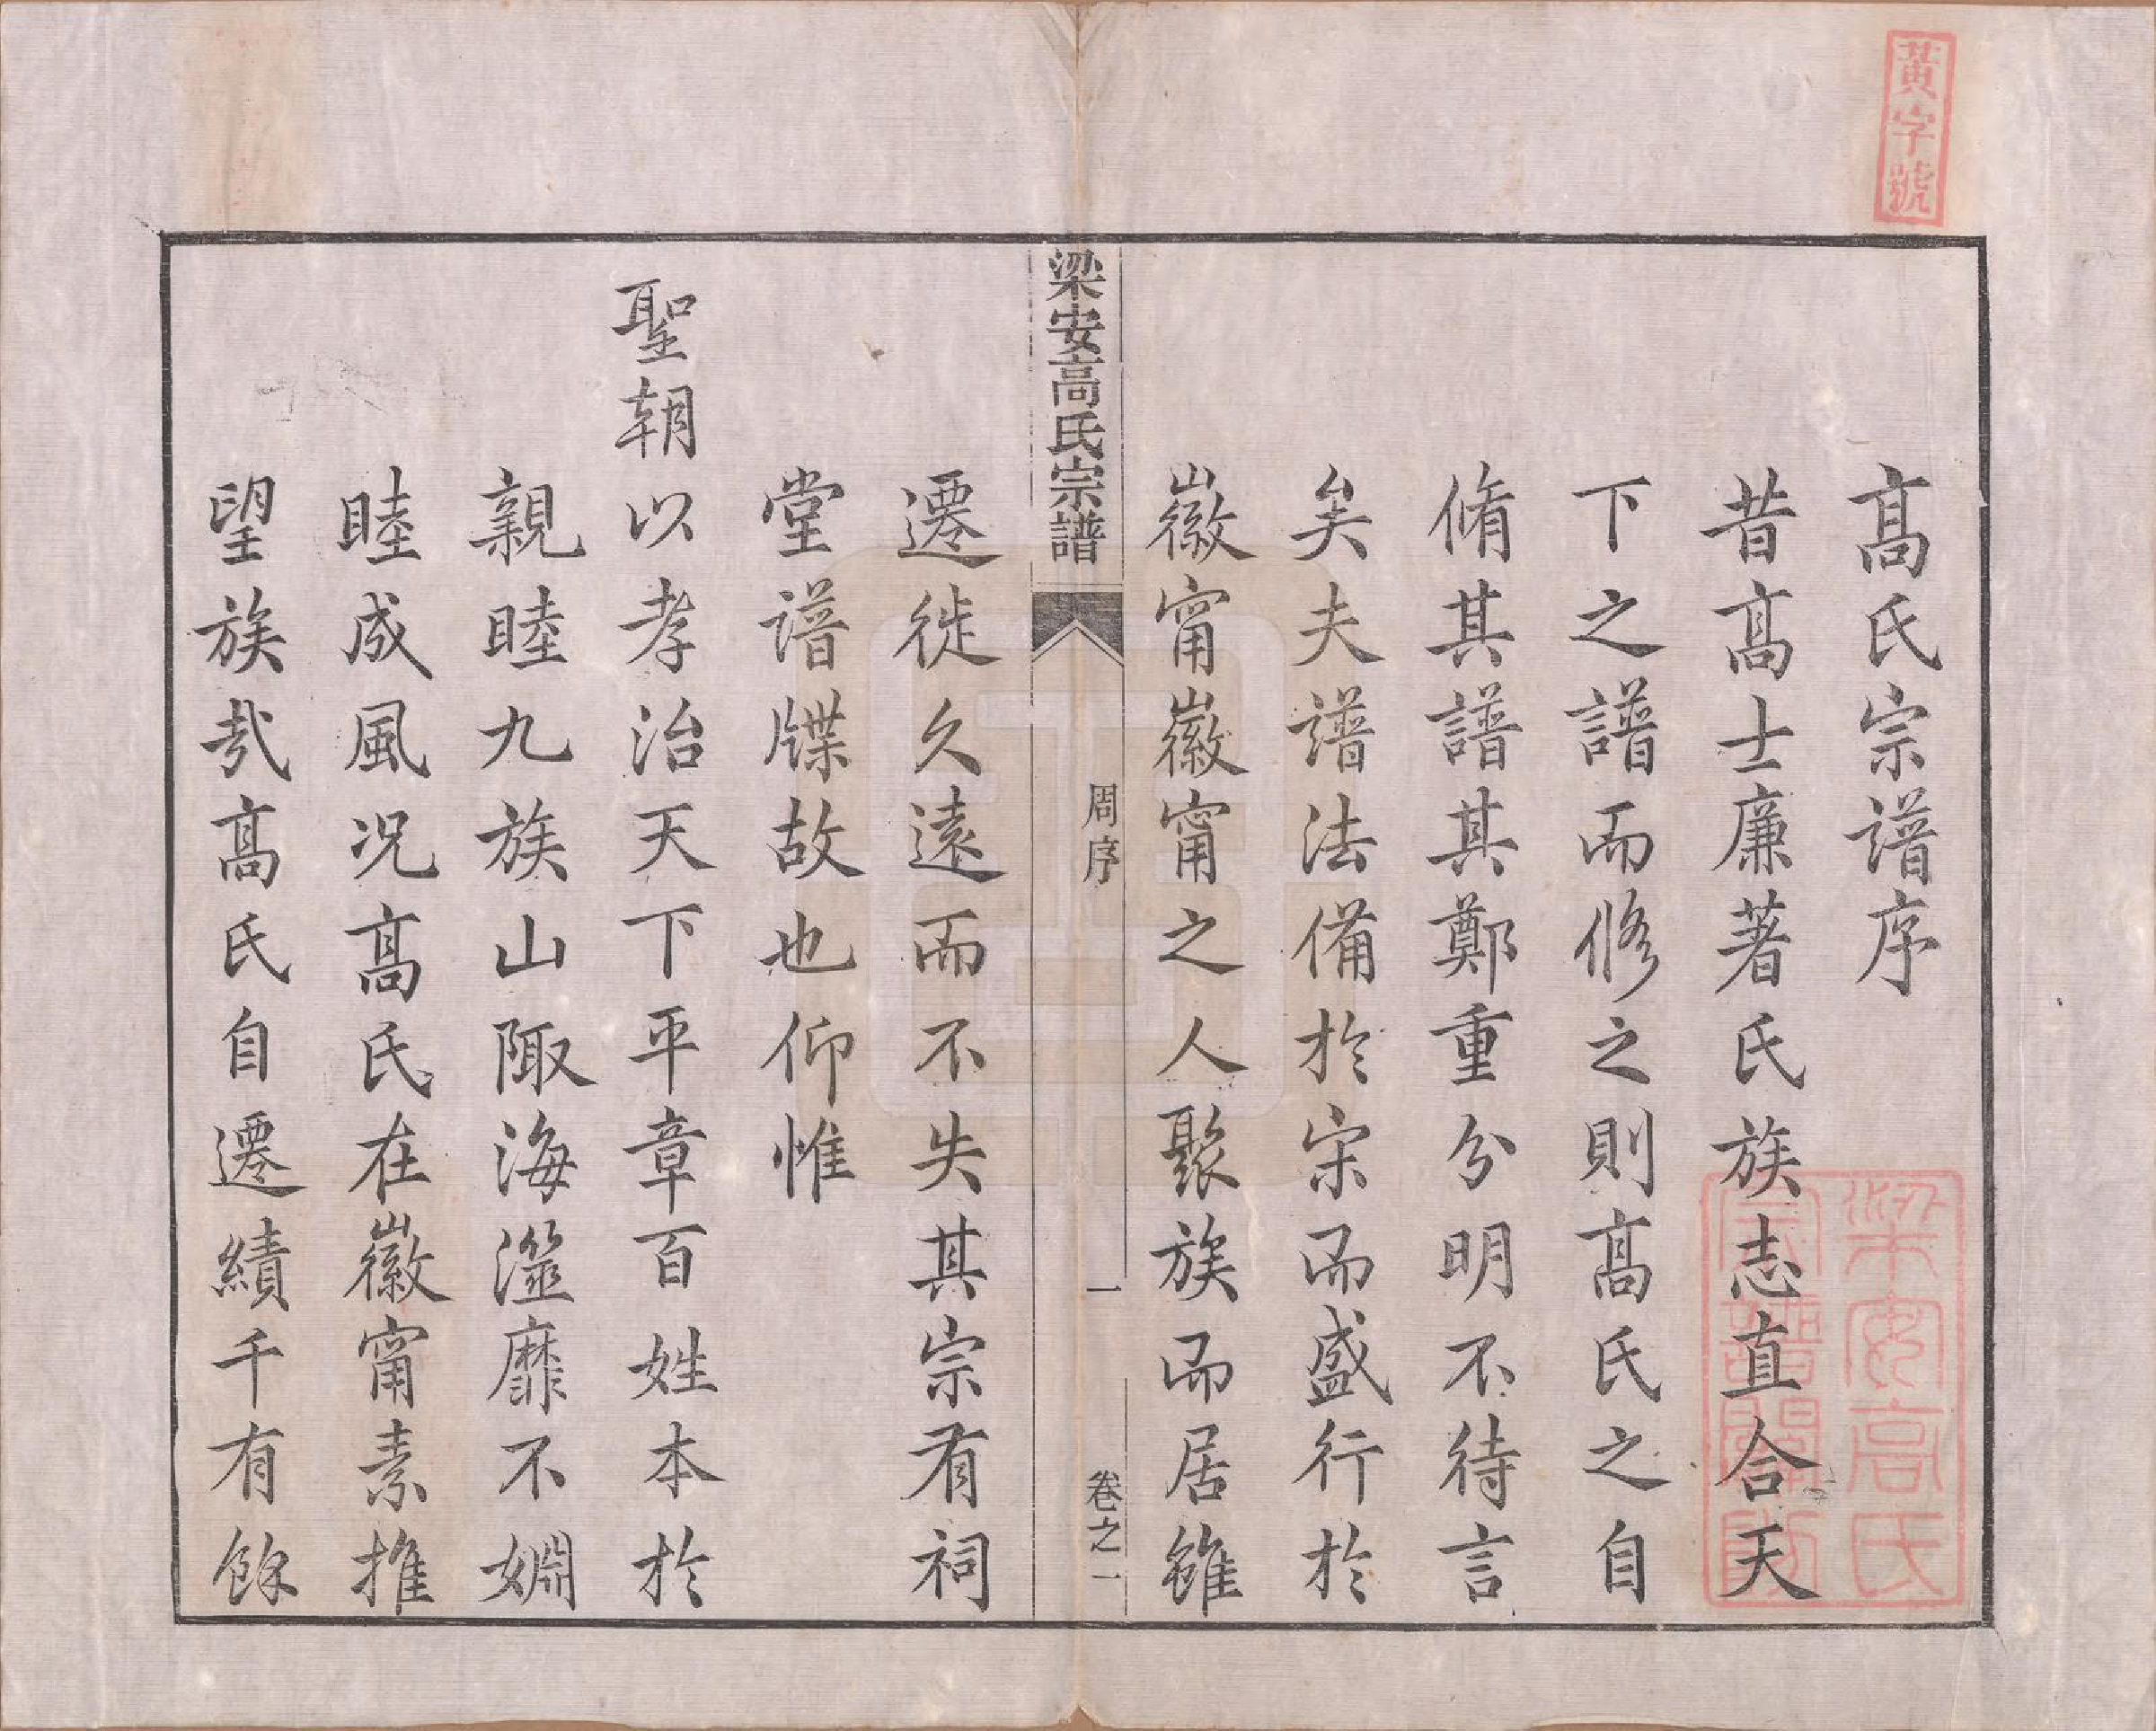 黃字號
高氏宗譜序
昔高士廉著氏族志直合天
下之譜而修之則高氏之自
脩其譜其鄭重分明不待言
矣夫譜法備於宋而盛行於
徽甯徽甯之人聚族而居雖
梁安高氏宗譜
周序
一
卷之一
遷徙久遠而不失其宗有祠
堂譜牒故也仰惟
聖朝以孝治天下平章百姓本於
親睦九族山陬海澨靡不嫺
睦成風況高氏在徽甯素推
望族哉高氏自遷績千有餘
梁安高氏